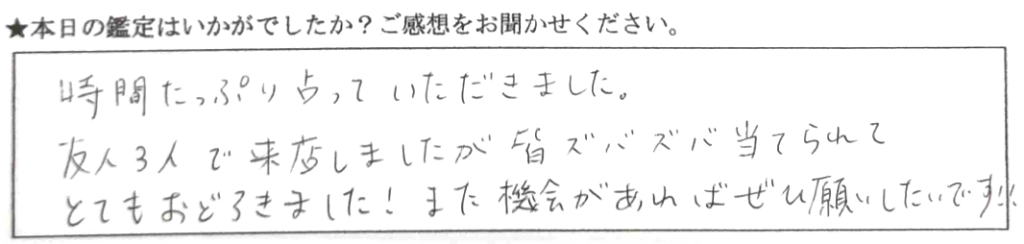 ★本日の鑑定はいかがでしたか？ご感想をお聞かせください。
時間たっぷり占っていただきました。
友人3人で来店しましたが皆ズバズバ当てられて
とてもおどろきました！また機会があればぜひ願いしたいです!!